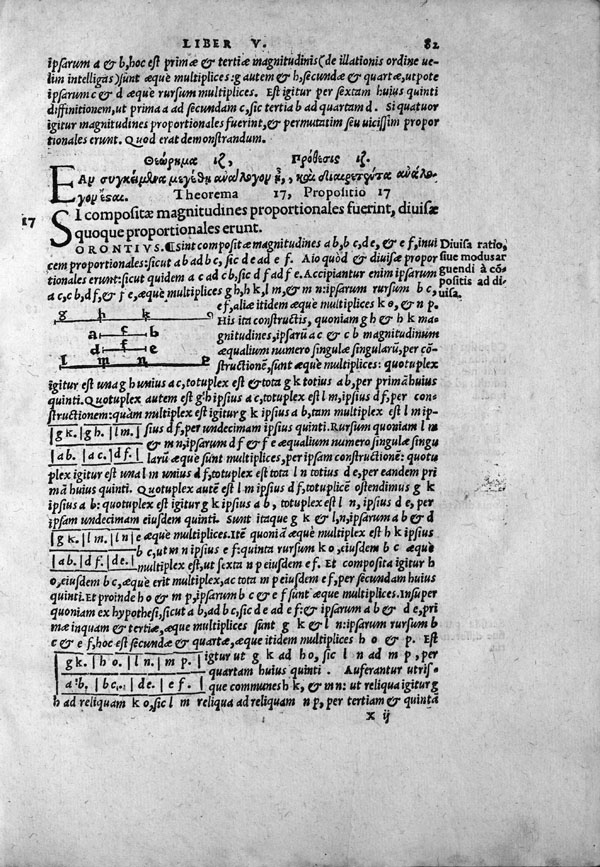 LIBER V. 82
ipsarum a & b, hoc est primæ & tertiæ magnitudinis (de illationis ordine ve-
lim intelligas) sunt æque multiplices: g autem & h, secundæ & quartæ, utpote
ipsarum c & d æque rursum multiplices. Est igitur per sextam huius quinti
diffinitionem, ut prima a ad secundam c, sic tertia b ad quartam d. Si quatuor
igitur magnitudines proportionales fuerint, & permutatim seu uicissim propor
tionales erunt. Quod erat demonstrandum.
Θεώρημα ιζ, Πρόθεσις ιζ.
Εαν συγκείμενα μεγέθη ἀνάλογον ᾖ, καὶ διαιρεθέντα ἀνάλο-
γον ἔσται. Theorema 17, Propositio 17
17 SI compositæ magnitudines proportionales fuerint, diuisæ
quoque proportionales erunt.
ORONTIVS. ¶Sint compositæ magnitudines a b, b c, d e, & e f, inui
cem proportionales: sicut a b ad b c, sic d e ad e f. Aio quòd & diuisæ propor
tionales erunt: sicut quidem a c ad c b, sic d f ad f e. Accipiantur enim ipsarum
a c, c b, d f, & f e, æque multiplices g h, h k, l m, & m n: ipsarum rursum b c,
Diuisa ratio,
siue modus ar
guendi à cō-
positis ad di-
uisa.
e f, aliæ itidem æque multiplices k o, & n p.
His ita constructis, quoniam g h & h k ma-
gnitudines, ipsarū a c & c b magnitudinum
æqualium numero singulæ singularū, per cō-
structionē, sunt æque multiplices: quotuplex
g h k o
a c b
d f e
l m n p
igitur est una g h unius a c, totuplex est & tota g k totius a b, per primā huius
quinti. Quotuplex autem est g h ipsius a c, totuplex est l m, ipsius d f, per con-
structionem: quàm multiplex est igitur g k ipsius a b, tam multiplex est l m ip-
sius d f, per undecimam ipsius quinti. Rursum quoniam l m
& m n, ipsarum d f & f e æqualium numero singulæ singu
larū æque sunt multiplices, per ipsam constructionē: quotu
g k. | g h. | l m.
a b. | a c. | d f.
plex igitur est una l m unius d f, totuplex est tota l n totius d e, per eandem pri
mā huius quinti. Quotuplex autē est l m ipsius d f, totuplicē ostendimus g k
ipsius a b: quotuplex est igitur g k ipsius a b, totuplex est l n, ipsius d e, per
ipsam undecimam eiusdem quinti. Sunt itaque g k & l n, ipsarum a b & d
e æque multiplices. Itē quoniā æque multiplex est h k ipsius
b c, ut m n ipsius e f: quinta rursum k o, eiusdem b c æque
multiplex est, ut sexta n p eiusdem e f. Et composita igitur h
g k. | l m. | l n
a b. | d f. | d e.
o, eiusdem b c, æque erit multiplex, ac tota m p eiusdem e f, per secundam huius
quinti. Et proinde h o & m p, ipsarum b c & e f sunt æque multiplices. Insuper
quoniam ex hypothesi, sicut a b, ad b c, sic d e ad e f: & ipsarum a b & d e, pri
mæ inquam & tertiæ, æque multiplices sunt g k & l n: ipsarum rursum b
c & e f, hoc est secundæ & quartæ, æque itidem multiplices h o & p. Est
igitur ut g k ad h o, sic l n ad m p, per
quartam huius quinti. Auferantur utris-
que communes h k, & m n: ut reliqua igitur g
g k. | h o. | l n. | m p.
a b. | b c. | d e. | e f.
h ad reliquam k o, sic l m reliqua ad reliquam n p, per tertiam & quinta
X ij